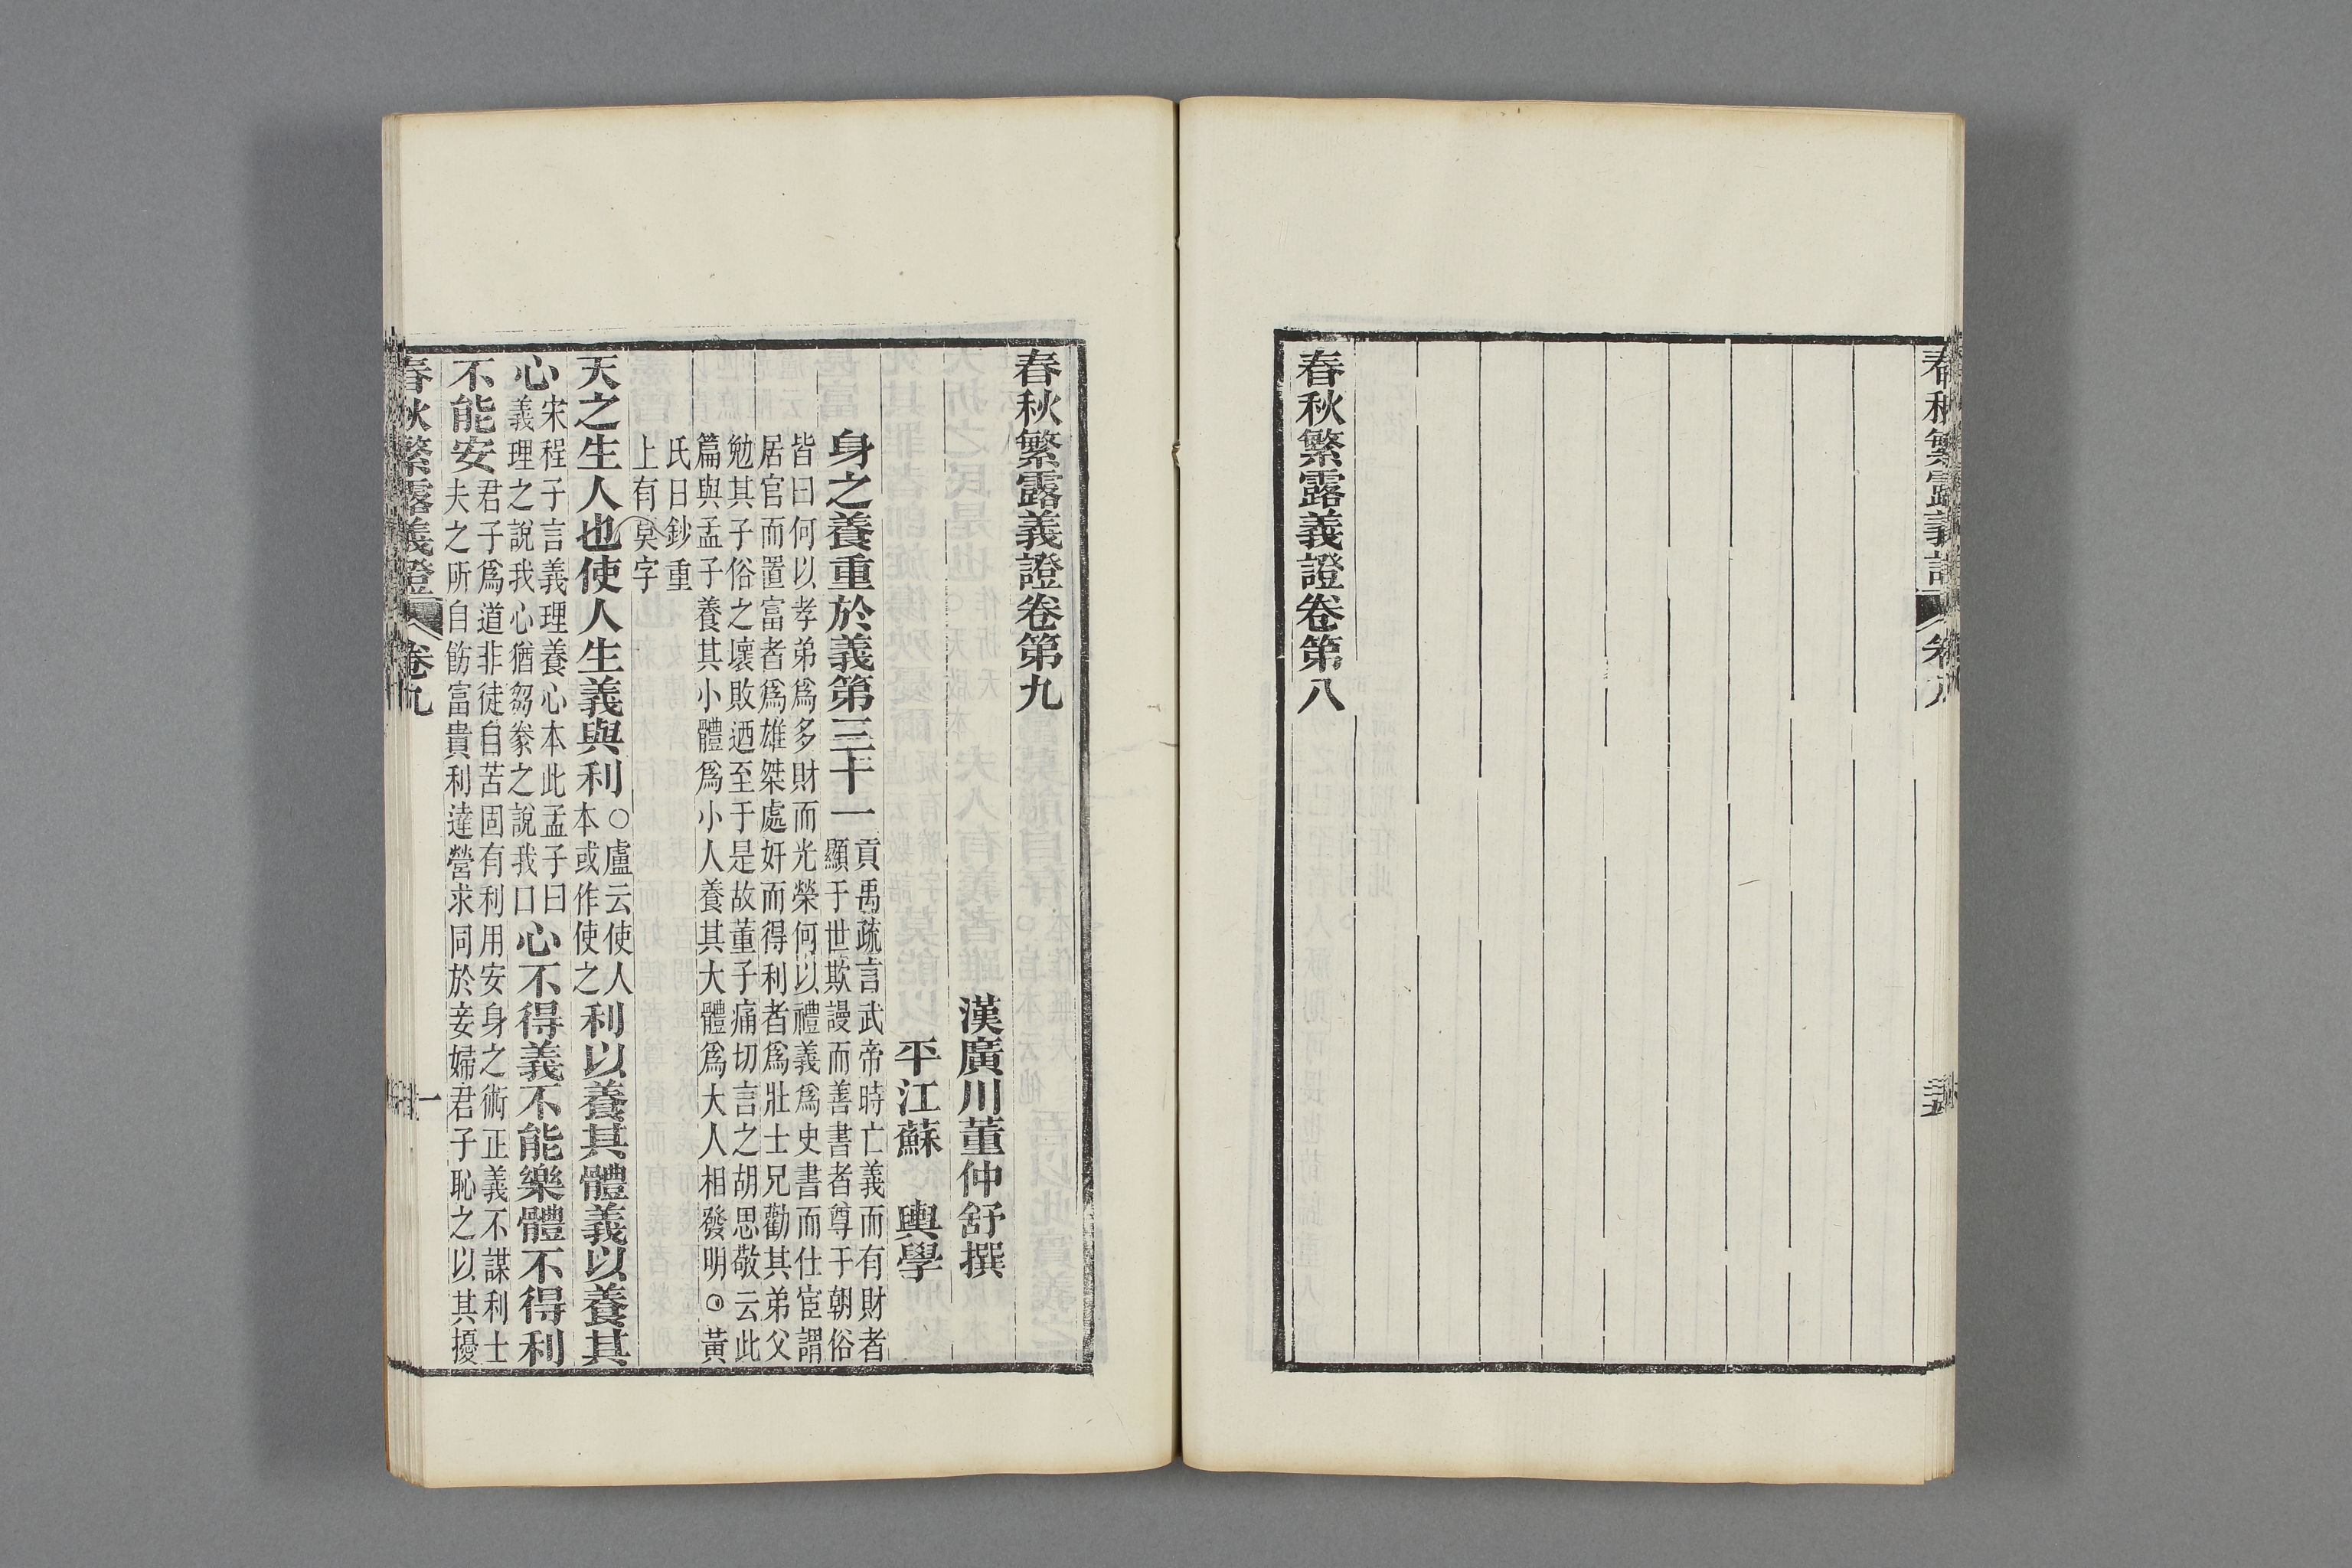 春秋繁露義證 卷八
春秋繁露義證卷第八
春秋繁露義證卷第九
漢廣川董仲舒撰
平江蘇 輿學
身之養重於義第三十一 貢禹疏言武帝時亡義而有財者
顯于世欺謾而善書者尊于朝俗
皆曰何以孝弟爲多財而光榮何以禮義爲史書而仕宦謂
居官而置富者爲雄桀處奸而得利者爲壯士兄勸其弟父
勉其子俗之壞敗迺至于是故董子痛切言之胡思敬云此
篇與孟子養其小體爲小人養其大體爲大人相發明○黃
氏日鈔重
上有莫字
天之生人也使人生義與利○盧云使人本或作使之利以養其體義以養其
心宋程子言義理養心本此孟子曰義理之說我心猶芻豢之說我口心不得義不能樂體不得利
不能安君子爲道非徒自苦固有利用安身之術正義不謀利士夫之所自飭富貴利達營求同於妾婦君子恥之以其擾
春秋繁露義證 卷九 一